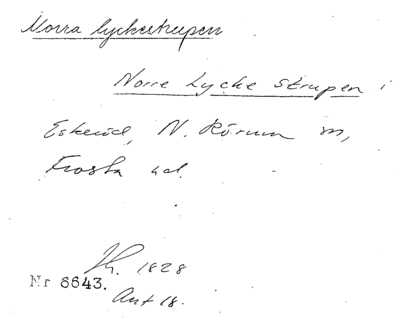 Norra lyckestrupen
Norre Lycke Strupen i
Eskeröd, N. Rörum sn,
Frosta hd.
1828
Nr 6643.
Akt 18.